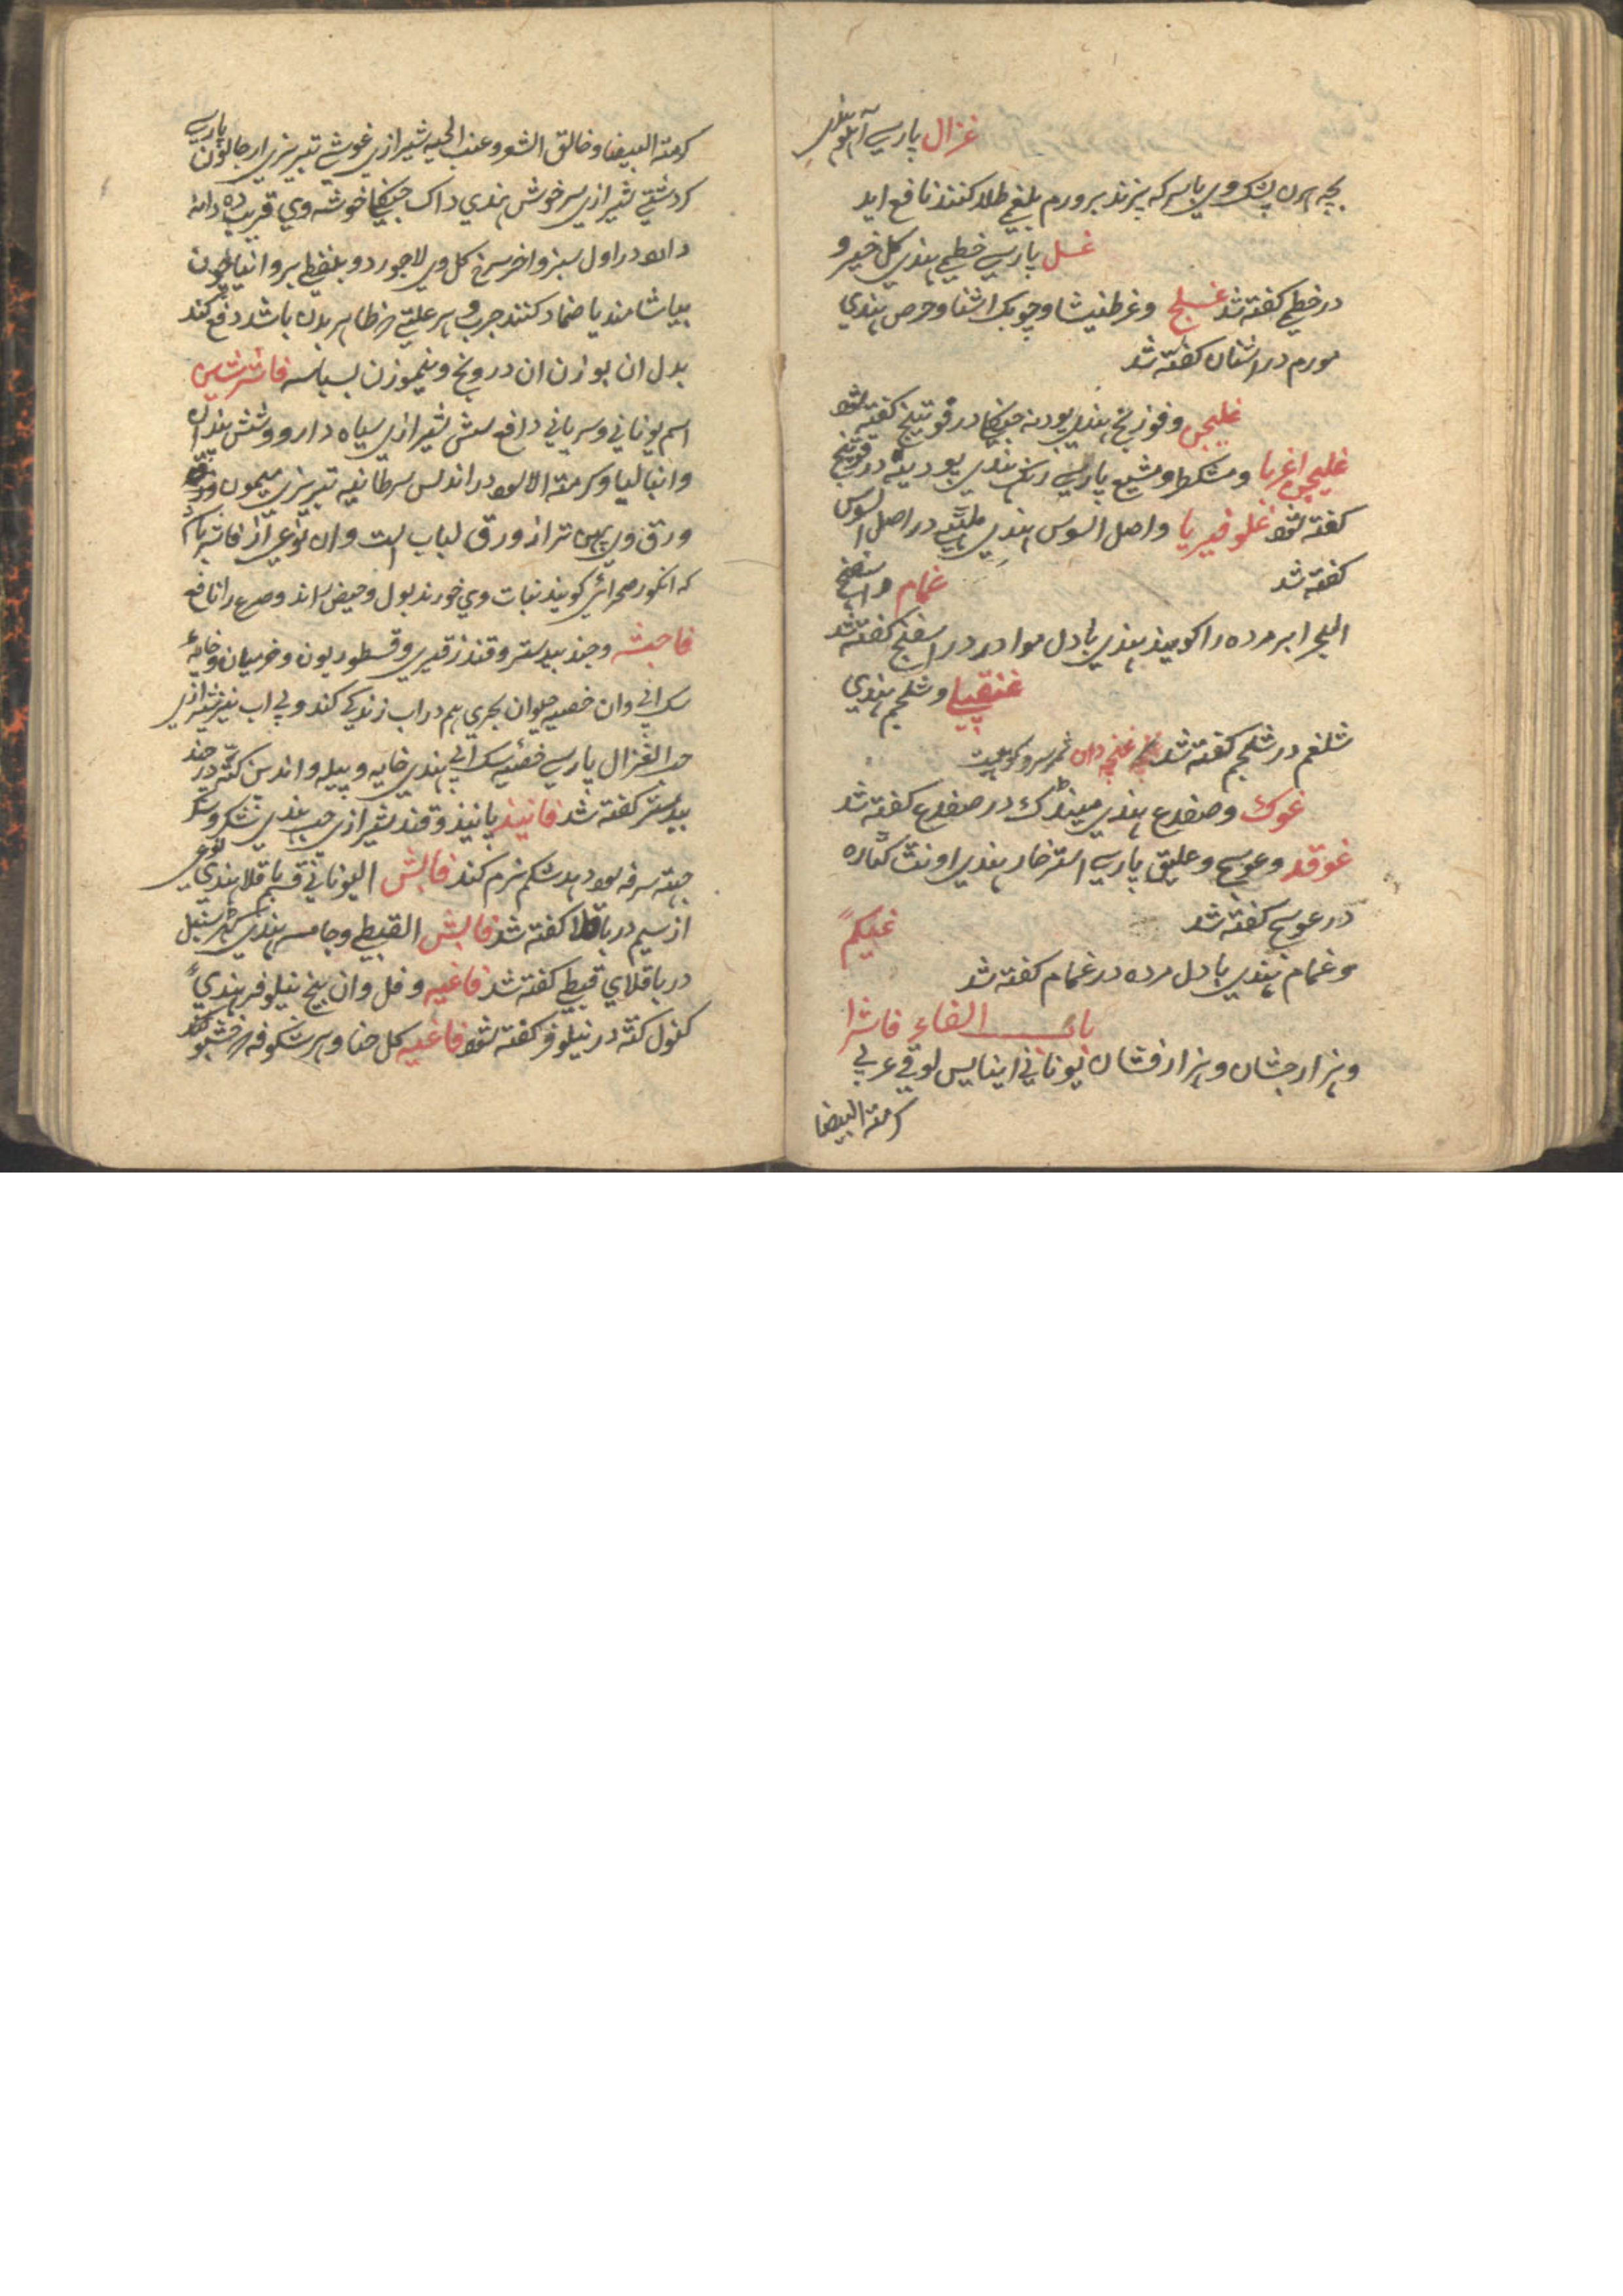 غزال پارسی آهو هندی
بچه هرن پشک وی با سرکه بپزند بر ورم بلغمی طلا کنند نافع اید
غسل پارسی خطمی هندی کل خیرو
در خطمی کفته شد غسلج وغرطنیشا وچوبک اشنا وحرض هندی
مورم در اشنان کفته شد
غلیجن وفوزنج هندی پودنه جنکا در فوتنج کفته شود
غلیجن اغریا ومشکطرومشیع پارسی هندی پودینه در فوتنج
کفته شود غلوفیریا واصل السوس هندی ملتهی در اصل السوس
کفته شد
غمام واسفنج
البحر ابر مرده را کویند هندی بادل موا در در اسفنج کفته شد
غنقیلی وشلجم هندی
شلغم در شلجم کفته شد غنچه دان ثمر سرو کوهیست
غوک وضفدع هندی میندک در ضفدع کفته شد
غوقد وعوسج وعلیق پارسی اشترخار هندی اونت کتاره
در عوسج کفته شد
غیم
وغمام هندی بادل مرده در غمام کفته شد
باب الفاء فاشرا
وهزار جشان وهزار فشان یونانی اینایس لوقی عربی
کرمته البیضا
کرمته البیضا وخالق الشعر وعنب الحیه شیرازی غوشی تبریزی ارجالون پارسی
کردشتی شیرازی سرخوش هندی داک جنکا خوشه وی قریب ده دانه
دارد در اول سبز واخر سرخ کل وی لاجورد وبلفظی بروانیا چون
بیاشامند یا ضماد کنند جرب وهر علتی در ظاهر بدن باشد دفع کند
بدل ان بوزن ان درونج ونیموزن بسباسه فاشرشین
اسم یونانی وسریانی دافع شش شیرازی سیاه دارو وشش بندان
وانبالیا وکرمته الاسود در اندلس سرطانیه تبریزی میمون
ورق وی پهن تر از ورق لبلاب است وان نوعی از فاشرا
که انکور صحرائی کویند نبات وی خورند بول وحیض براند وصرع را نافع
فاحیشه وجند بیدستر وقندز قیری وقسطوریون وخزمیان وخایهء
سک ابی وان خصیه حیوان بحری هم در اب زندکی کند وبی اب نیز شیرازی
الغزال پارسی خصیه سک ابی هندی خایه وبیله واندین کته در جند
بیدستر کفته شد فانیذ پانیذ وقند شیرازی هندی شکر
جهته سرفه سود دهد شکم نرم کند فابش الیونانی قسم باقلا هندی نوعی
از سیم در باقلا کفته شد فابش القبطی وجامسه هندی سنبل
در باقلای قبطی کفته شد فاغیه وفل وان بیخ نیلوفر هندی
کنول کته در نیلوفر کفته شود فاغیه کل حنا وهر شکوفه خوشبو